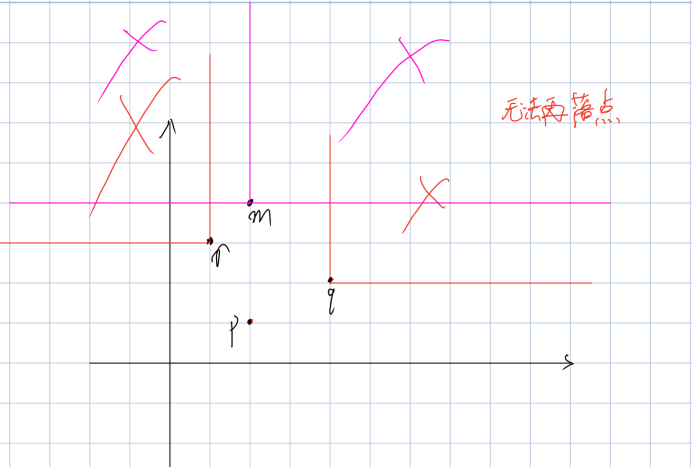 无法再落点
m
r
q
p